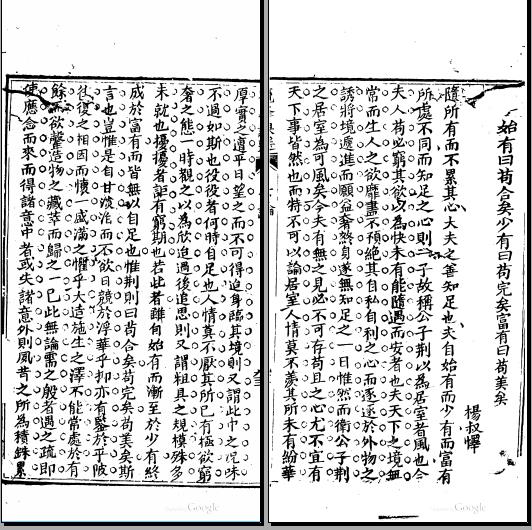 始有曰苟合矣少有曰苟完矣富有曰苟美矣
楊叔懌
隨所有而不累其心大夫之善知足也夫自始有而少有而富有
所處不同而知足之心則一子故稱公子荆以為居室者風也今
夫人苟必窮其欲以為快未有能隨遇而安者也夫天下之境無
常而生人之欲靡盡不預絕其自私自利之心而逐逐於外物之
誘將境遞進而願益奢終身遂無知足之一日惟然而衛公子荆
之居室為可風矣今夫有無之見必不可存苟且之心尤不宜有
天下事皆然也而特不可以論居室人情莫不羨其所未有紛華
厚實之道平日望之而不可得迨身臨其境則又謂此中之況味
不過如斯也役役者何時自足也人情莫不厭其所已有極欲窮
奢之態一時觀之以為欣迨過後追思則又謂粗具之規模殊多
未就也擾擾者詎有窮期也若此者雖自始有而漸至於少有終
成於富有而皆無以自足也惟荆則曰苟合矣苟完矣苟美矣斯
言也豈惟是自甘淡泊而不欲日競於浮華乎抑亦有鑒於乎陂
往復之相因而懷一盛滿之懼乎大造施生之澤不能常處於有
餘而欲罄造物之藏萃而歸之一已此無論需之殷者遇之疏即
使應念而來而得諸意中者或失諸意外則夙昔之所為積銖累
Google
Google